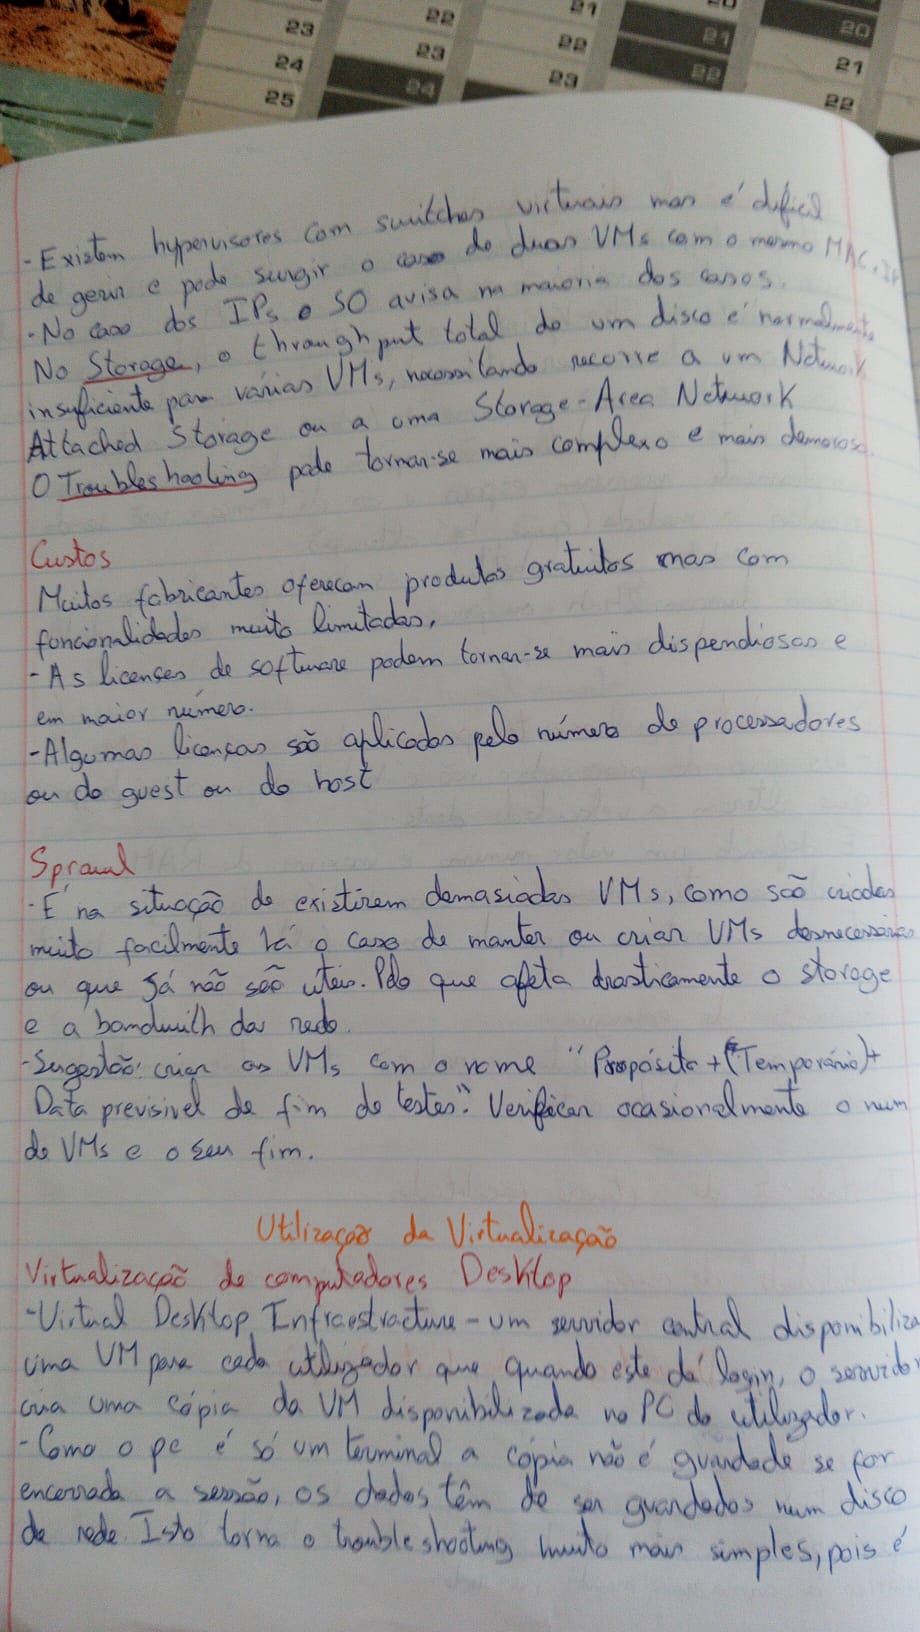 23 22 21 20 20
24 23 22 21 21
25 24 23 22 22
- Existem hypervisores com switches virtuais mas é dificil
de gerir e pode surgir o caso de duas VMs com o mesmo MAC e IP
- No caso dos IPs o SO avisa na maioria dos casos.
No Storage, o throughput total de um disco é normalmente
insuficiente para várias VMs, necessitando recorre a um Network
Attached Storage ou a uma Storage-Area Network
O Troubleshooling pode tornar-se mais complexo e mais demoroso.
Custos
Muitos fabricantes oferecem produtos gratuitos mas com
funcionalidades muito limitadas,
- As licenses de software podem tornar-se mais dispendiosas e
em maior número.
- Algumas licenças são aplicadas pelo número de processadores
ou do guest ou do host
Sprawl
- É na situação de existirem demasiadas VMs, como são criadas
muito facilmente há o caso de manter ou criar VMs desnecessárias
ou que já não são úteis. Pelo que afeta drasticamente o storage
e a bandwith da rede.
- Sugestão: criar as VMs com o nome "Propósito + (Temporário) +
Data previsivel de fim de testes". Verificar ocasionalmente o num
de VMs e o seu fim.
Utilização da Virtualização
Virtualização de computadores Desktop
- Virtual Desktop Infraestracture - um servidor central disponibiliza
uma VM para cada utilizador que quando este dá login, o servidor
cria uma cópia da VM disponibilizada no PC do utilizador.
- Como o pc é só um terminal a cópia não é guardada se for
encerrada a sessão, os dados têm de ser guardados num disco
de rede. Isto torna o troubleshooting muito mais simples, pois é